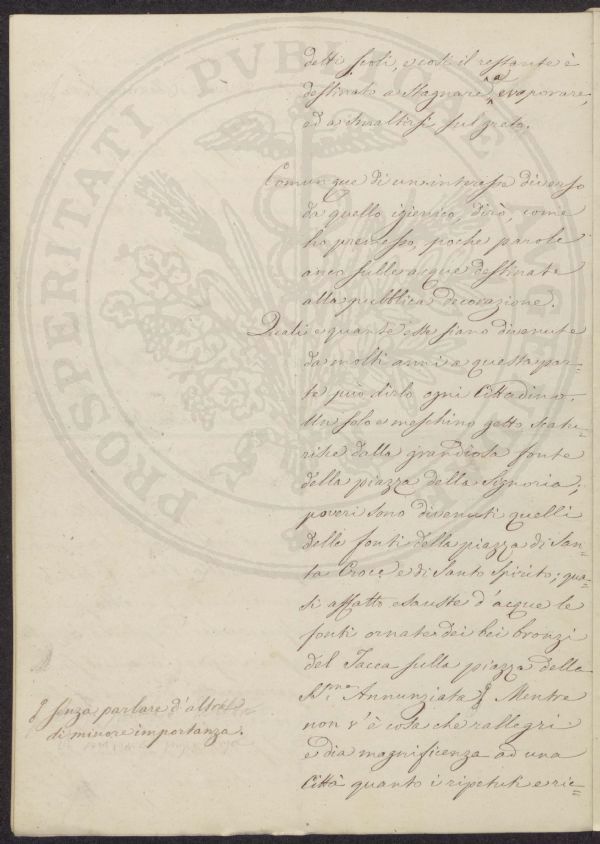 detti scoli, e così il restante è
destinato a stagnare, a evaporare,
od a smaltirsi sul greto.
Comunque di un'interesse diverso
da quello igienico, dirò, come
ho premesso, poche parole
anco sulle acque destinate
alla pubblica decorazione.
Quali e quante esse siano divenute
da molti anni a questa par=
te può dirlo ogni Cittadino.
Un solo e meschino getto scatu=
risce dalla grandiosa fonte
della piazza della Signoria;
poveri sono divenuti quelli
delle fonti della piazza di San=
ta Croce e di Santo Spirito; qua=
si affatto esauste d'acque le
fonti ornate dei bei bronzi
del Tacca sulla piazza della
SS.ma Annunziata. Mentre
non v'è cosa che rallegri
e dia magnificenza ad una
Città quanto i ripetuti e ric=
senza parlare d'altre
di minore importanza.
PROSPERITATI PVBLICAE AVG